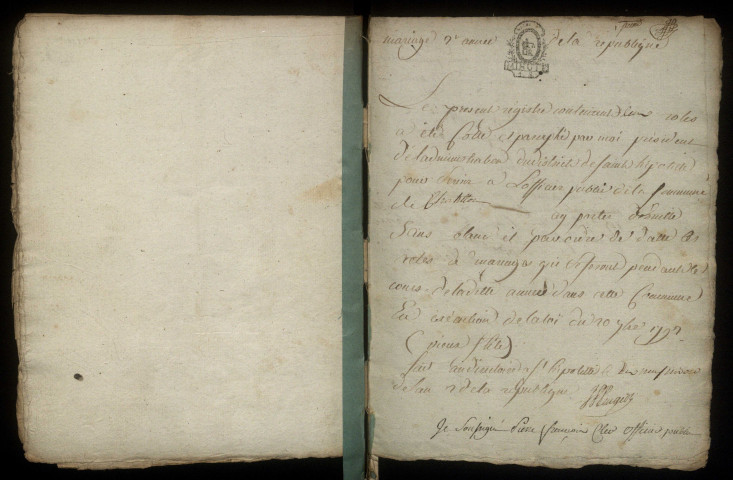 mariage 2e année de la republique
Le present registre contenant deux roles
a été Cotté et paraphé par moi president
de Ladministration du district de saint hipolite
pour servir a Lofficier public de la Commune
de Chatillon
ay porter de suitte
Sans blanc et par ordre de datte les
actes de mariages qui se feront pendant le
cours de la ditte année dans cette Commune
En execution de la loi du 20 7bre 1792
fait au directoire a St hipolitte le dix neuf nivose
de lan 2 de la republique
Je soussigné Pierre françois officier public